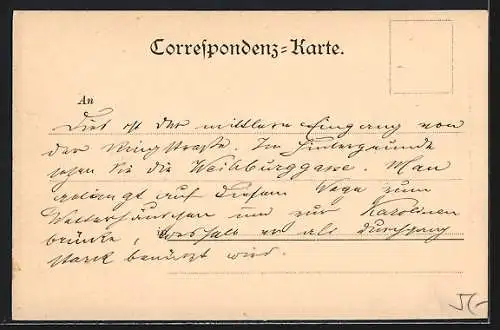 Correspondenz=Karte.
An
Dies ist der mittlere Eingang von
der Ringstraße. Im Hintergrunde
sehen Sie die Weihburggasse. Man
gelangt auf diesem Wege zum
Wetterhäuschen und zur Karolinen
brücke, weshalb er als Durchgang
stark benützt wird.